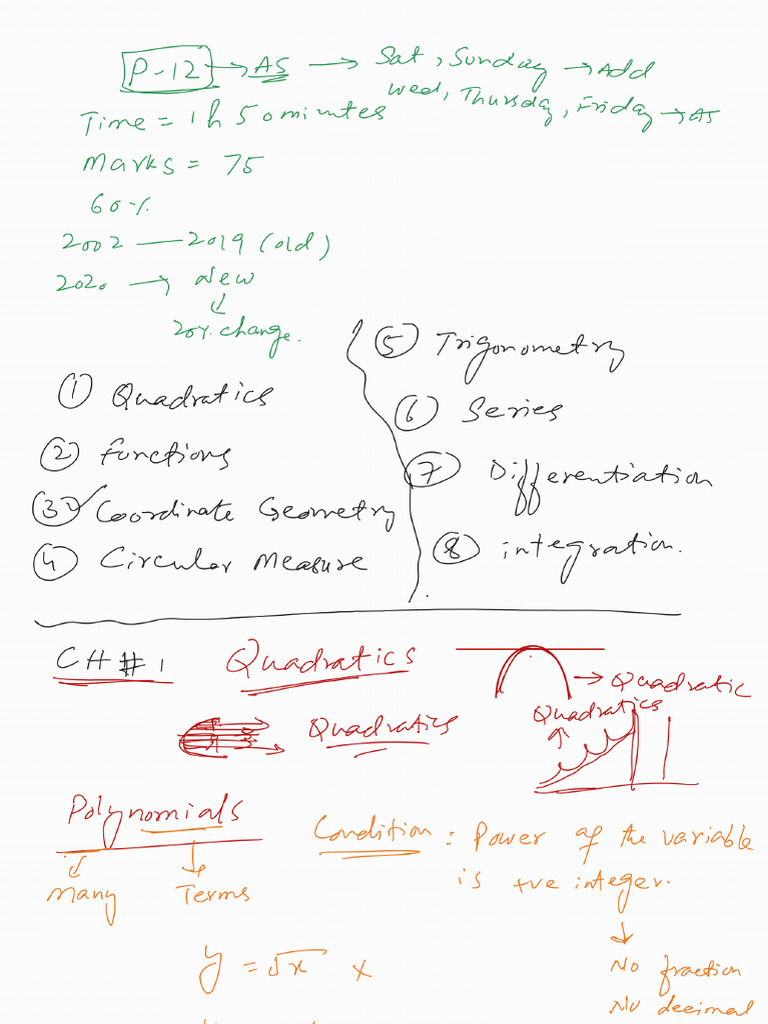 P-12 → AS → Sat, Sunday → Add
Wed, Thursday, Friday → AS
Time = 1h 50 minutes
Marks = 75
60%
2002 — 2019 (old)
2020 → New
↓
20% change.
① Quadratics
② Functions
③ ✓ Coordinate Geometry
④ Circular Measure
⑤ Trigonometry
⑥ Series
⑦ Differentiation
⑧ integration.
CH # 1 Quadratics
→ Quadratic
Quadratics
Quadratics
Polynomials
Many Terms
Condition : Power of the variable
is +ve integer.
↓
No fraction
No decimal
y = √x x